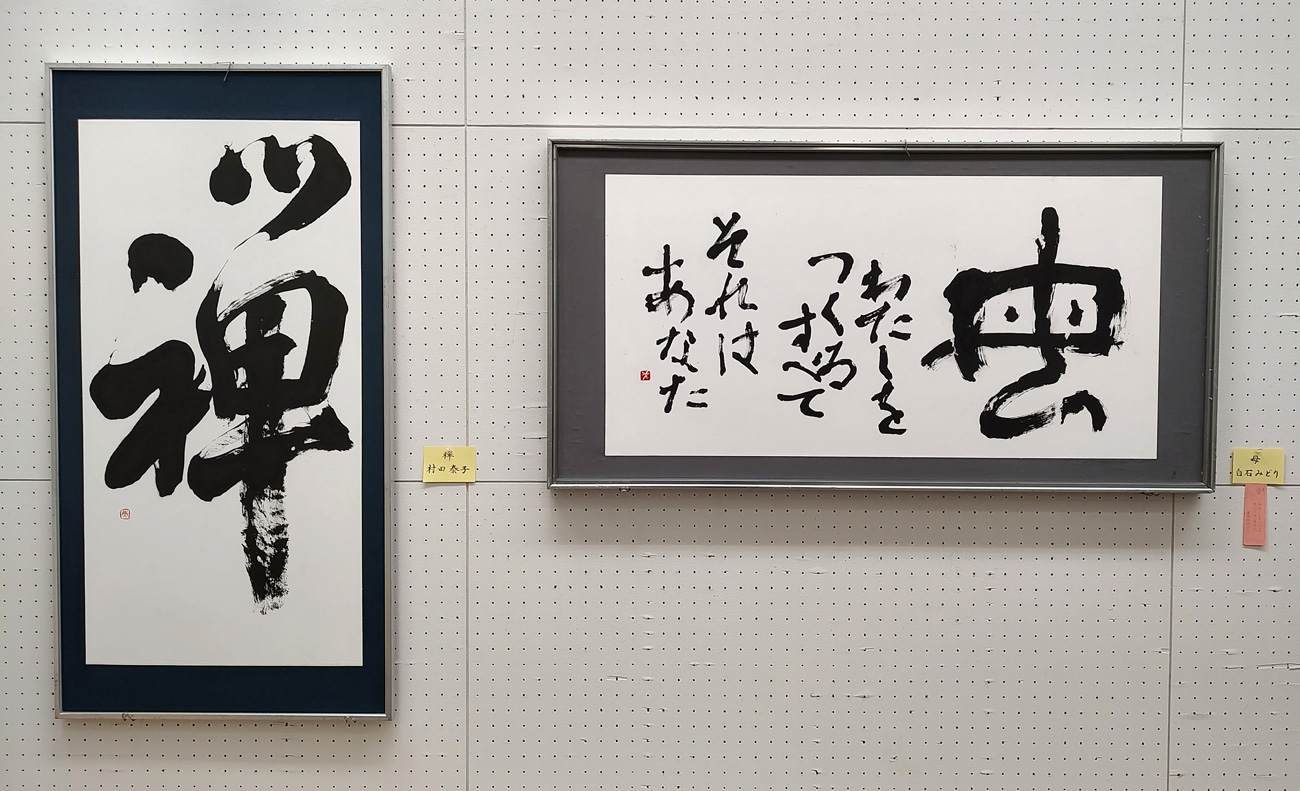 禅
禅
村田 泰子
わたしを
つくる
すべて
それは
あなた
母
白石みどり